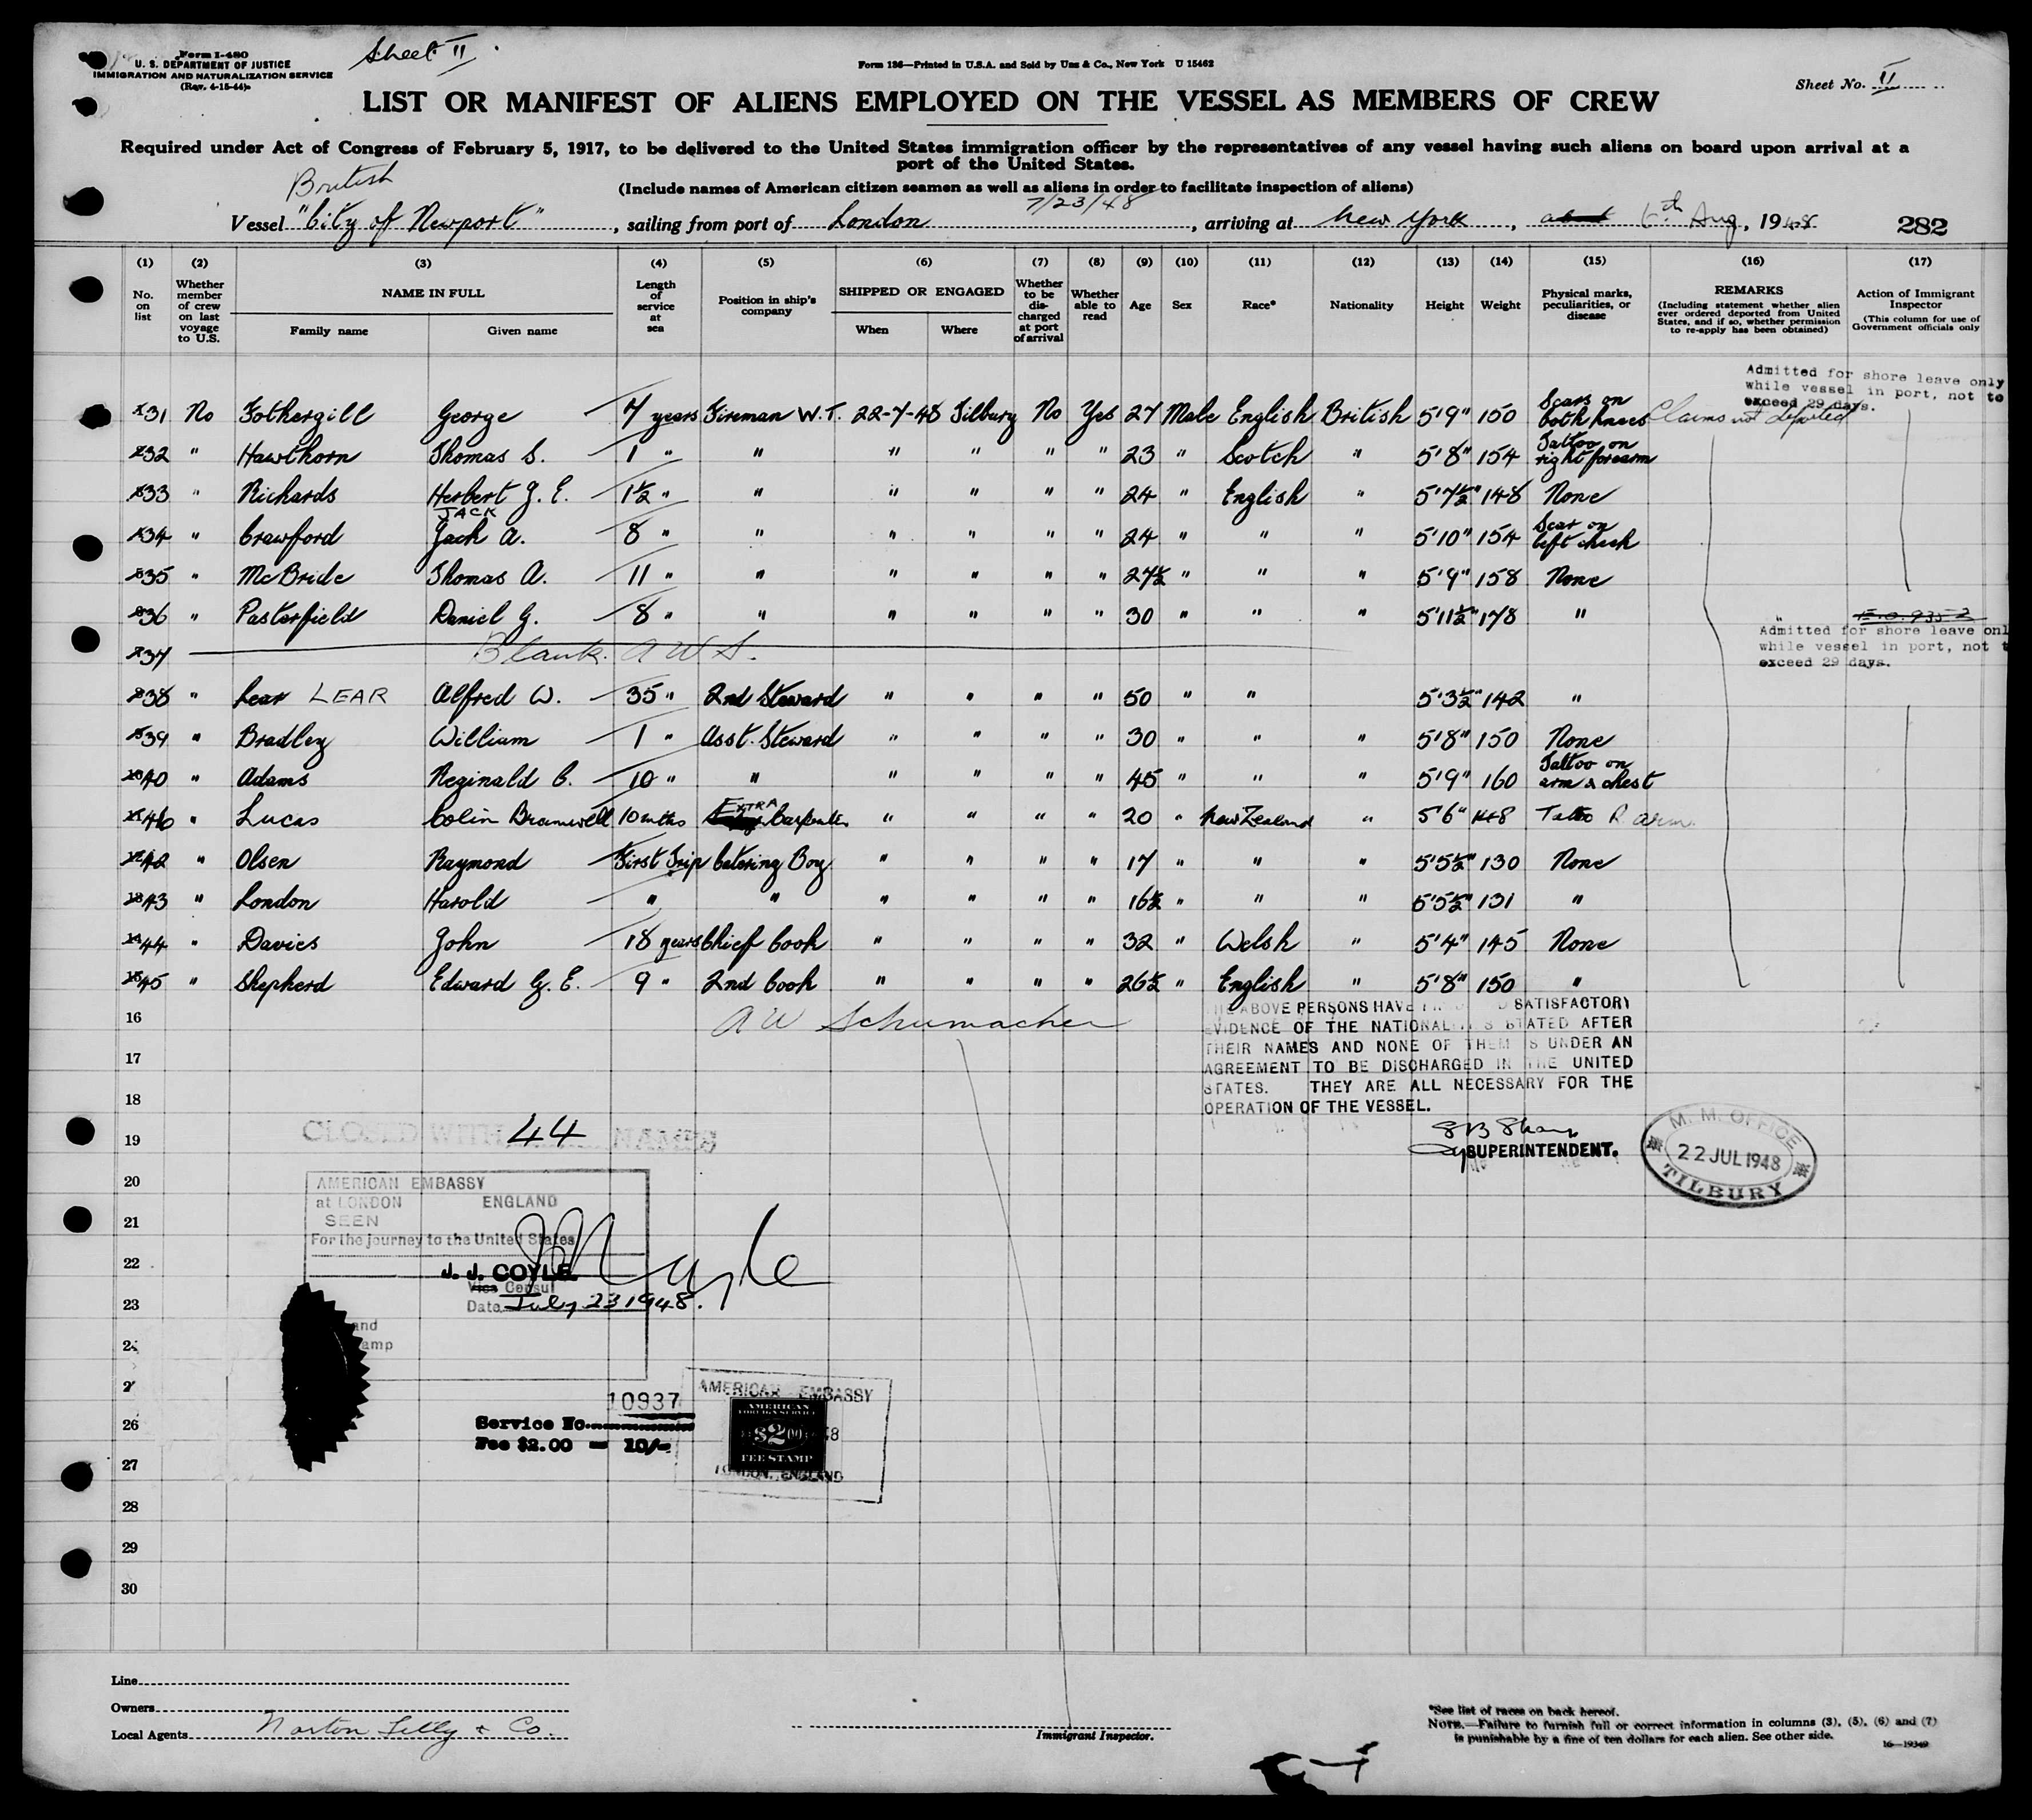 Form I-480
U. S. DEPARTMENT OF JUSTICE
IMMIGRATION AND NATURALIZATION SERVICE
(Rev. 4-15-44)
Sheet II
Form 136—Printed in U.S.A. and Sold by Unz & Co., New York U 15462
Sheet No. II
LIST OR MANIFEST OF ALIENS EMPLOYED ON THE VESSEL AS MEMBERS OF CREW
Required under Act of Congress of February 5, 1917, to be delivered to the United States immigration officer by the representatives of any vessel having such aliens on board upon arrival at a
port of the United States.
(Include names of American citizen seamen as well as aliens in order to facilitate inspection of aliens)
British
7/23/48
Vessel "City of Newport", sailing from port of London, arriving at New York, about 6th Aug, 1948
282
(1) (2) (3) (4) (5) (6) (7) (8) (9) (10) (11) (12) (13) (14) (15) (16) (17)
No. on list
Whether member of crew on last voyage to U.S.
NAME IN FULL
Family name
Given name
Length of service at sea
Position in ship's company
SHIPPED OR ENGAGED
When
Where
Whether to be discharged at port of arrival
Whether able to read
Age
Sex
Race*
Nationality
Height
Weight
Physical marks, peculiarities, or disease
REMARKS
(Including statement whether alien ever ordered deported from United States, and if so, whether permission to re-apply has been obtained)
Action of Immigrant Inspector
(This column for use of Government officials only
Admitted for shore leave only
while vessel in port, not to
exceed 29 days.
31 No Fothergill George 7 years Fireman W.T. 22-7-48 Tilbury No Yes 27 Male English British 5'9" 150 Scars on both knees Claims not deported
32 " Hawthorn Thomas S. 1 " " " " " " 23 " Scotch " 5'8" 154 Tattoo on right forearm
33 " Richards Herbert G. E. 1½ " " " " " " 24 " English " 5'7½" 148 None
JACK
34 " Crawford Jack A. 8 " " " " " " 24 " " " 5'10" 154 Scar on left cheek
35 " McBride Thomas A. 11 " " " " " " 27½ " " " 5'9" 158 None
36 " Pasterfield Daniel G. 8 " " " " " " 30 " " " 5'11½" 178 "
Admitted for shore leave onl
while vessel in port, not t
exceed 29 days.
37 Blank. A W S.
38 " Lear LEAR Alfred W. 35 " 2nd Steward " " " " 50 " " 5'3½" 142 "
39 " Bradley William 1 " Asst. Steward " " " " 30 " " " 5'8" 150 None
40 " Adams Reginald C. 10 " " " " " " 45 " " " 5'9" 160 Tattoo on arm & chest
46 " Lucas Colin Bramwell 10 mths EXTRA Carpenter " " " " 20 " New Zealand " 5'6" 148 Tattoo R arm
42 " Olsen Raymond First Trip Catering Boy " " " " 17 " " " 5'5½" 130 None
43 " London Harold " " " " " " 16½ " " " 5'5½" 131 "
44 " Davies John 18 years Chief Cook " " " " 32 " Welsh " 5'4" 145 None
45 " Shepherd Edward G. E. 9 " 2nd Cook " " " " 26½ " English " 5'8" 150 "
A W Schumacher
THE ABOVE PERSONS HAVE SATISFACTORY
EVIDENCE OF THE NATIONAL STATED AFTER
THEIR NAMES AND NONE OF THEM IS UNDER AN
AGREEMENT TO BE DISCHARGED IN THE UNITED
STATES. THEY ARE ALL NECESSARY FOR THE
OPERATION OF THE VESSEL.
SUPERINTENDENT.
M. M. OFFICE
22 JUL 1948
TILBURY
16
17
18
19
20
21
22
23
26
27
28
29
30
CLOSED WITH 44 NAMES
AMERICAN EMBASSY
at LONDON ENGLAND
SEEN
For the journey to the United States
J. J. COYLE
Vice Consul
Date July 23 1948.
10937
Service No.
Fee $2.00 = 10/-
AMERICAN EMBASSY
AMERICAN
FOREIGN SERVICE
$2.00
FEE STAMP
LONDON, ENGLAND
Line
Owners
Local Agents Norton Lilly & Co.
Immigrant Inspector.
*See list of races on back hereof.
NOTE.—Failure to furnish full or correct information in columns (3), (5), (6) and (7)
is punishable by a fine of ten dollars for each alien. See other side.
16—19349